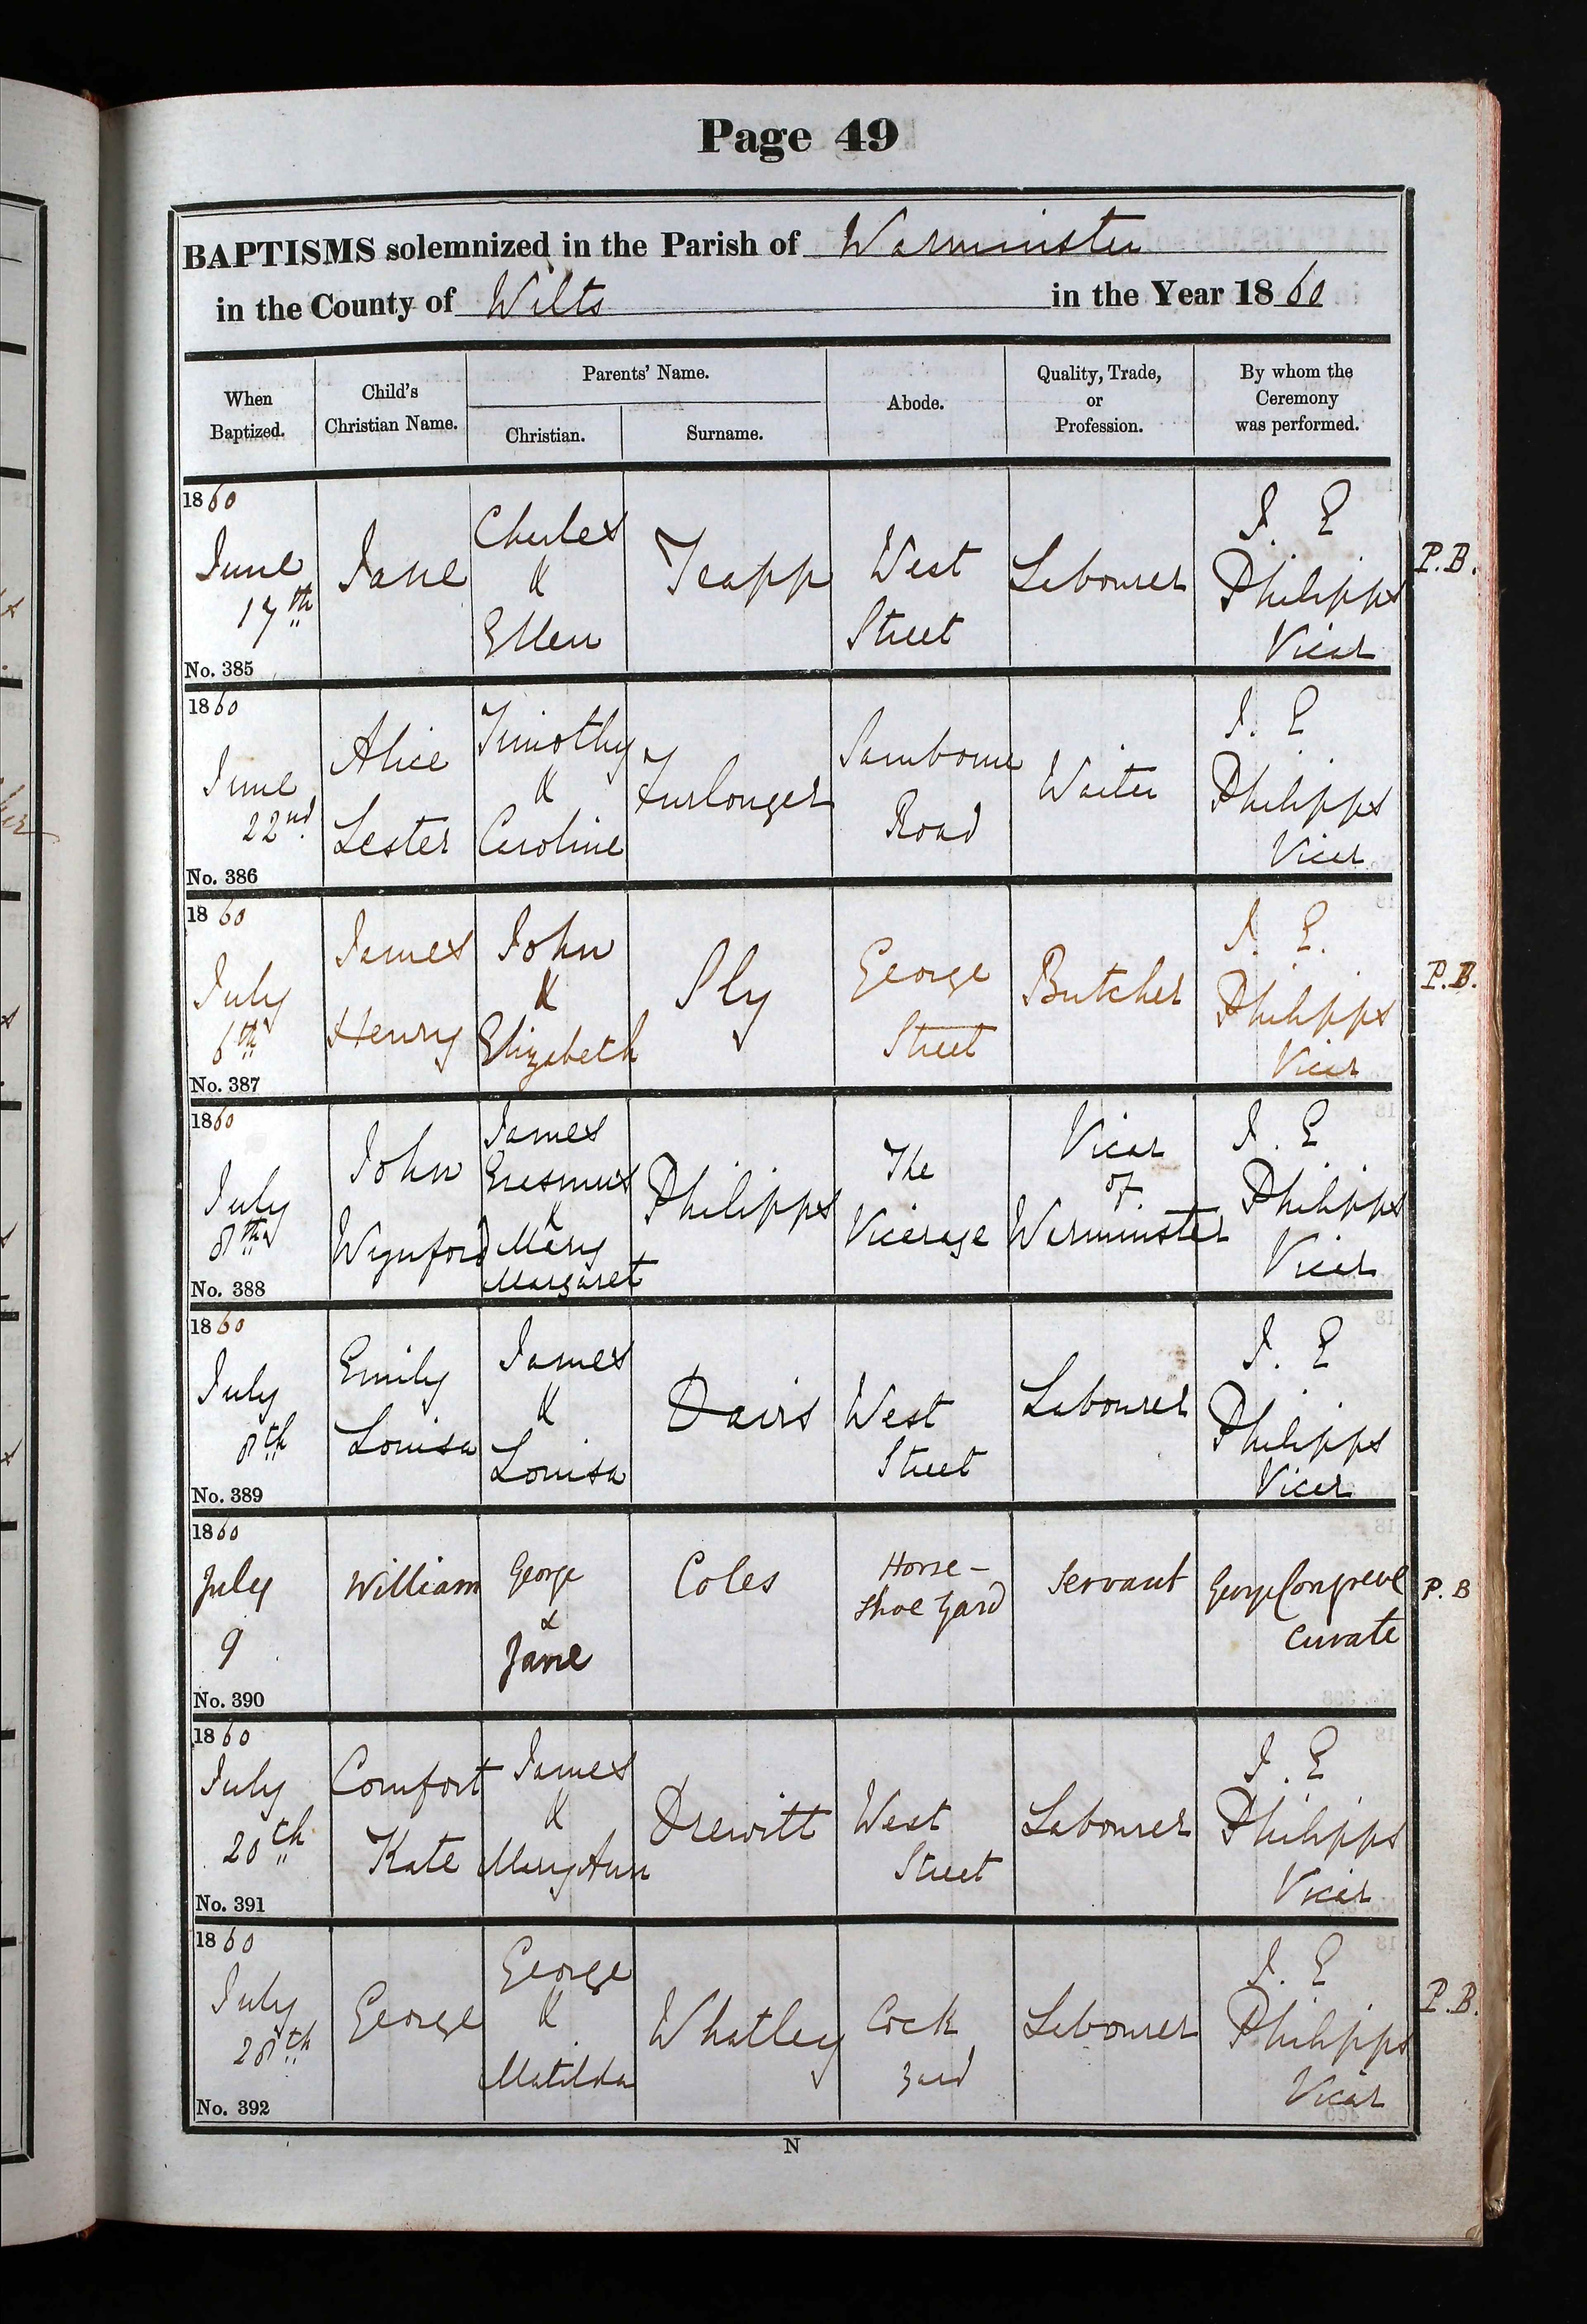 Page 49
BAPTISMS solemnized in the Parish of Warminster
in the County of Wilts in the Year 1860
When Baptized.
Child's Christian Name.
Parents' Name.
Christian.
Surname.
Abode.
Quality, Trade, or Profession.
By whom the Ceremony was performed.
1860
June 17th
No. 385
Jane
Charles & Ellen
West Street
Labourer
J. E Philipps Vicar
P.B.
1860
June 22nd
No. 386
Alice Lester
Timothy & Caroline
Furlonger
Sambourne Road
Waiter
J. E Philipps Vicar
1860
July 6th
No. 387
James Henry
John & Elizabeth
Sly
George Street
Butcher
J. E. Philipps Vicar
P.B.
1860
July 8th
No. 388
John Wynford
James Erasmus & Mary Margaret
Philipps
The Vicarage
Vicar of Warminster
J. E Philipps Vicar
1860
July 8th
No. 389
Emily Louisa
James & Louisa
Davis
West Street
Labourer
J. E Philipps Vicar
1860
July 9
No. 390
William
George & Jane
Coles
Horse-shoe Yard
Servant
George Congreve Curate
P. B
1860
July 20th
No. 391
Comfort Kate
James & Mary Ann
Drewitt
West Street
Labourer
J. E Philipps Vicar
1860
July 28th
No. 392
George
George & Matilda
Whatley
Cock Yard
Labourer
J. E Philipps Vicar
P.B.
N